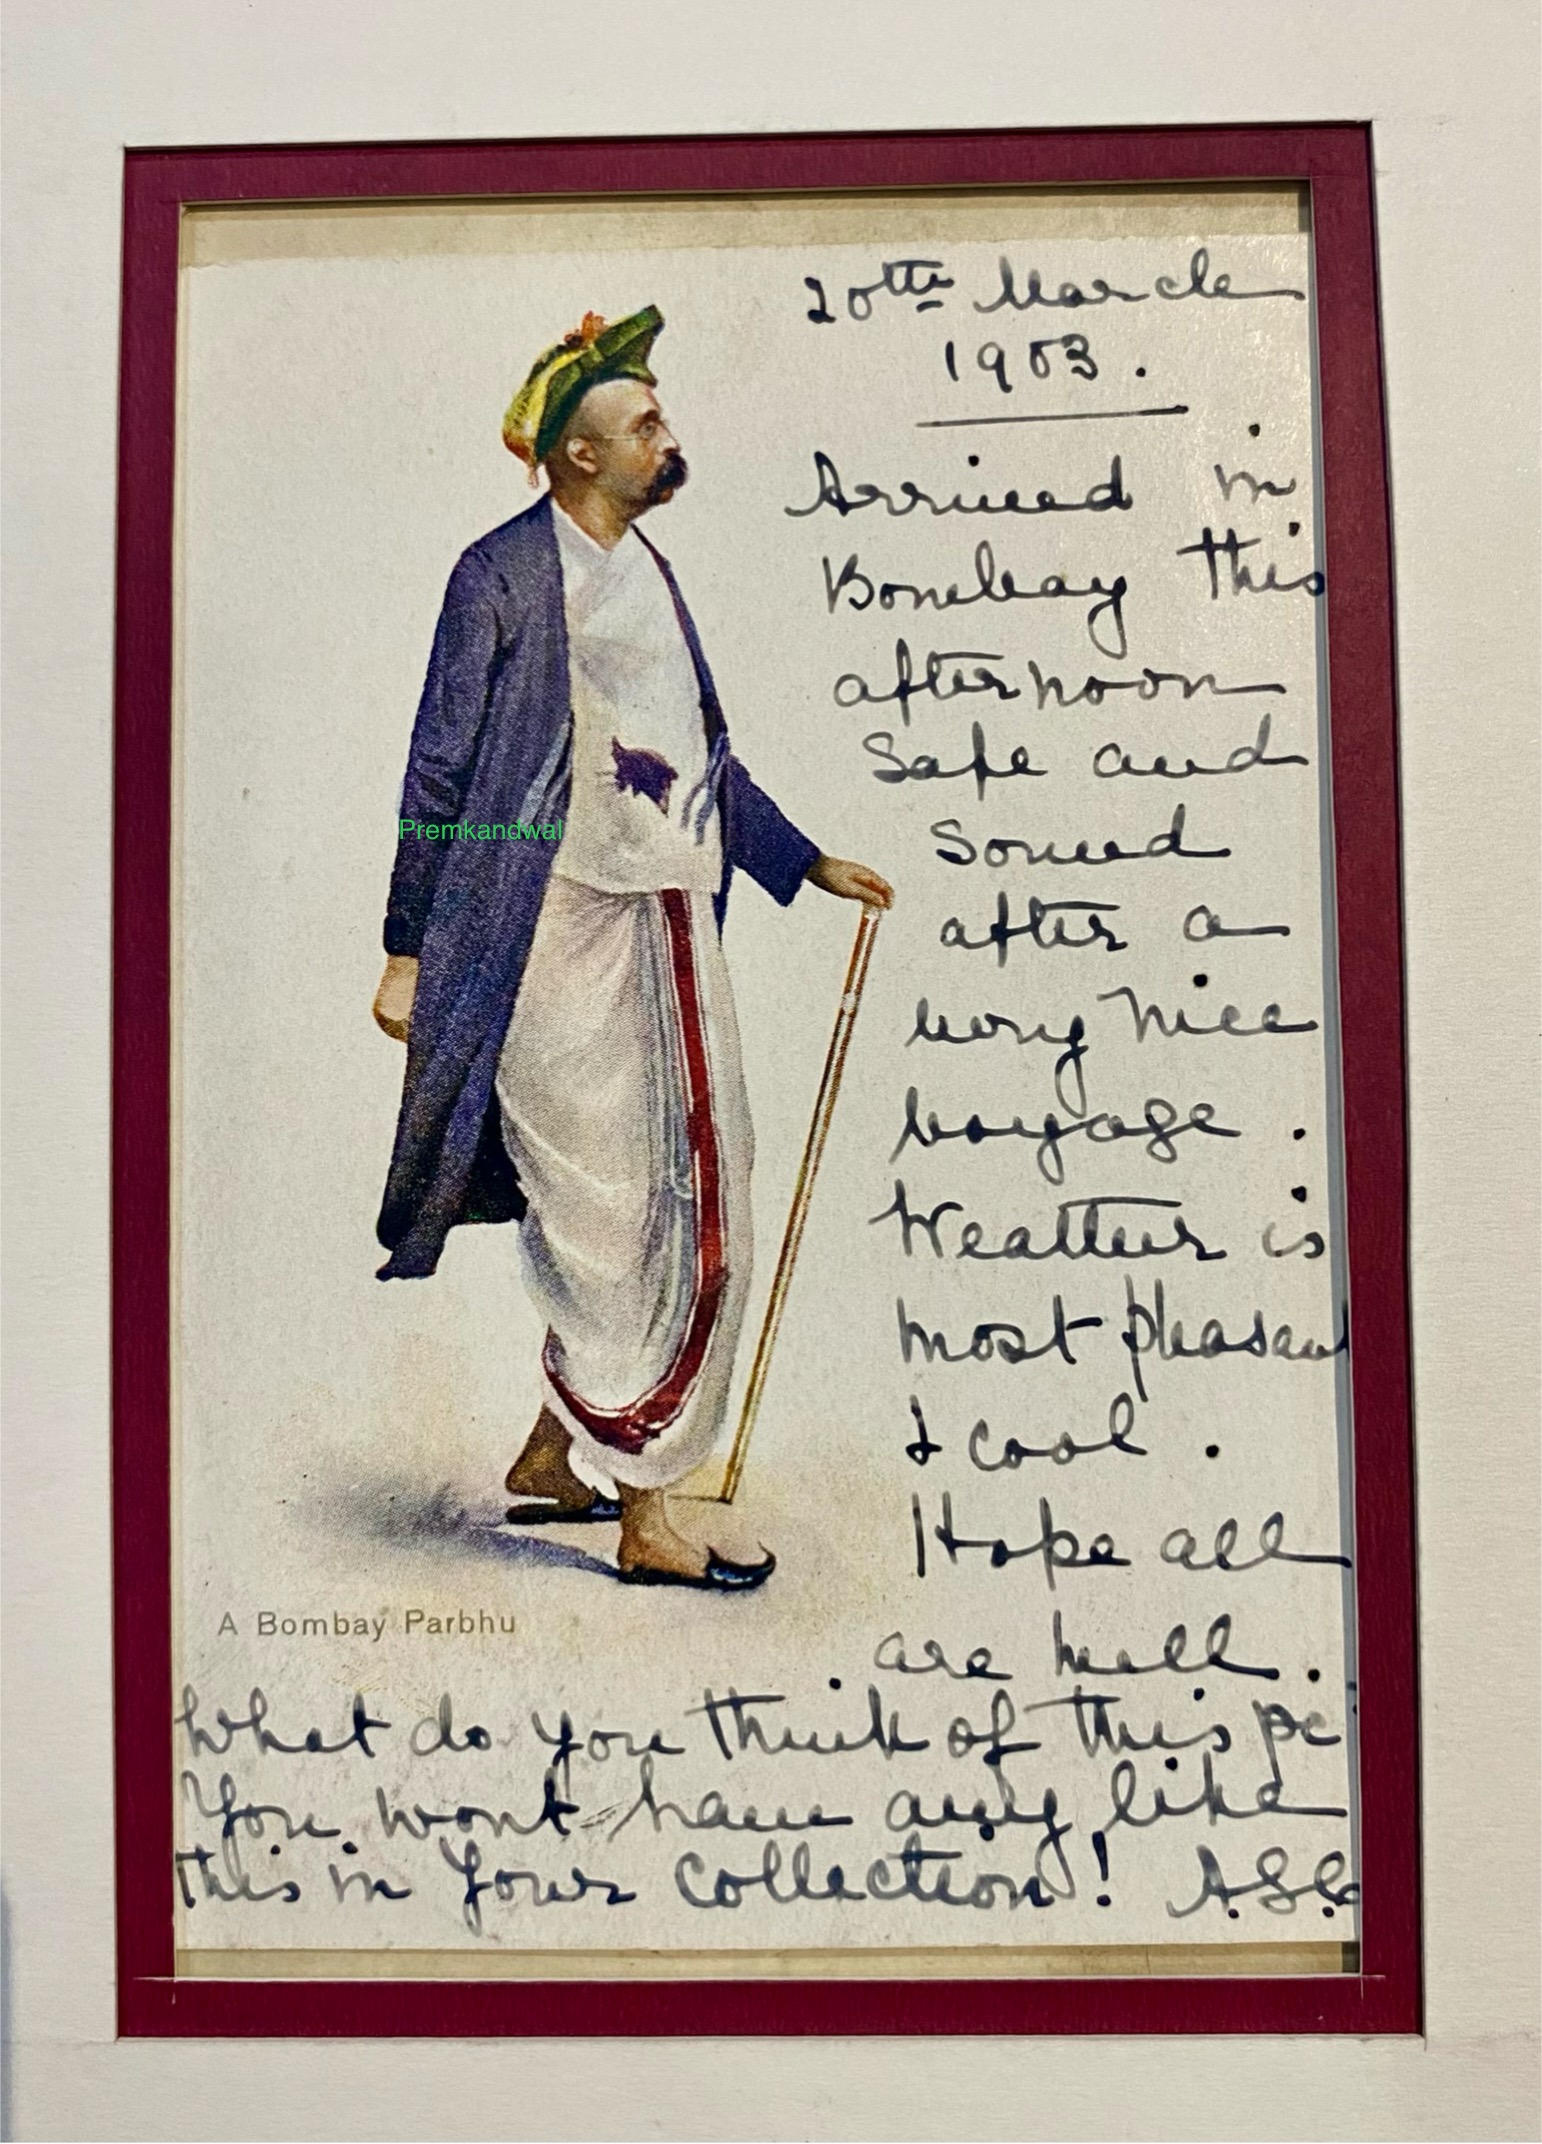 20th March
1903.
Arrived in
Bombay this
afternoon
Safe and
Sound
after a
very nice
voyage.
Weather is
most pleasant
& cool.
Hope all
are well.
Premkandwal
A Bombay Parbhu
What do you think of this pc
You wont have any like
this in your collection!